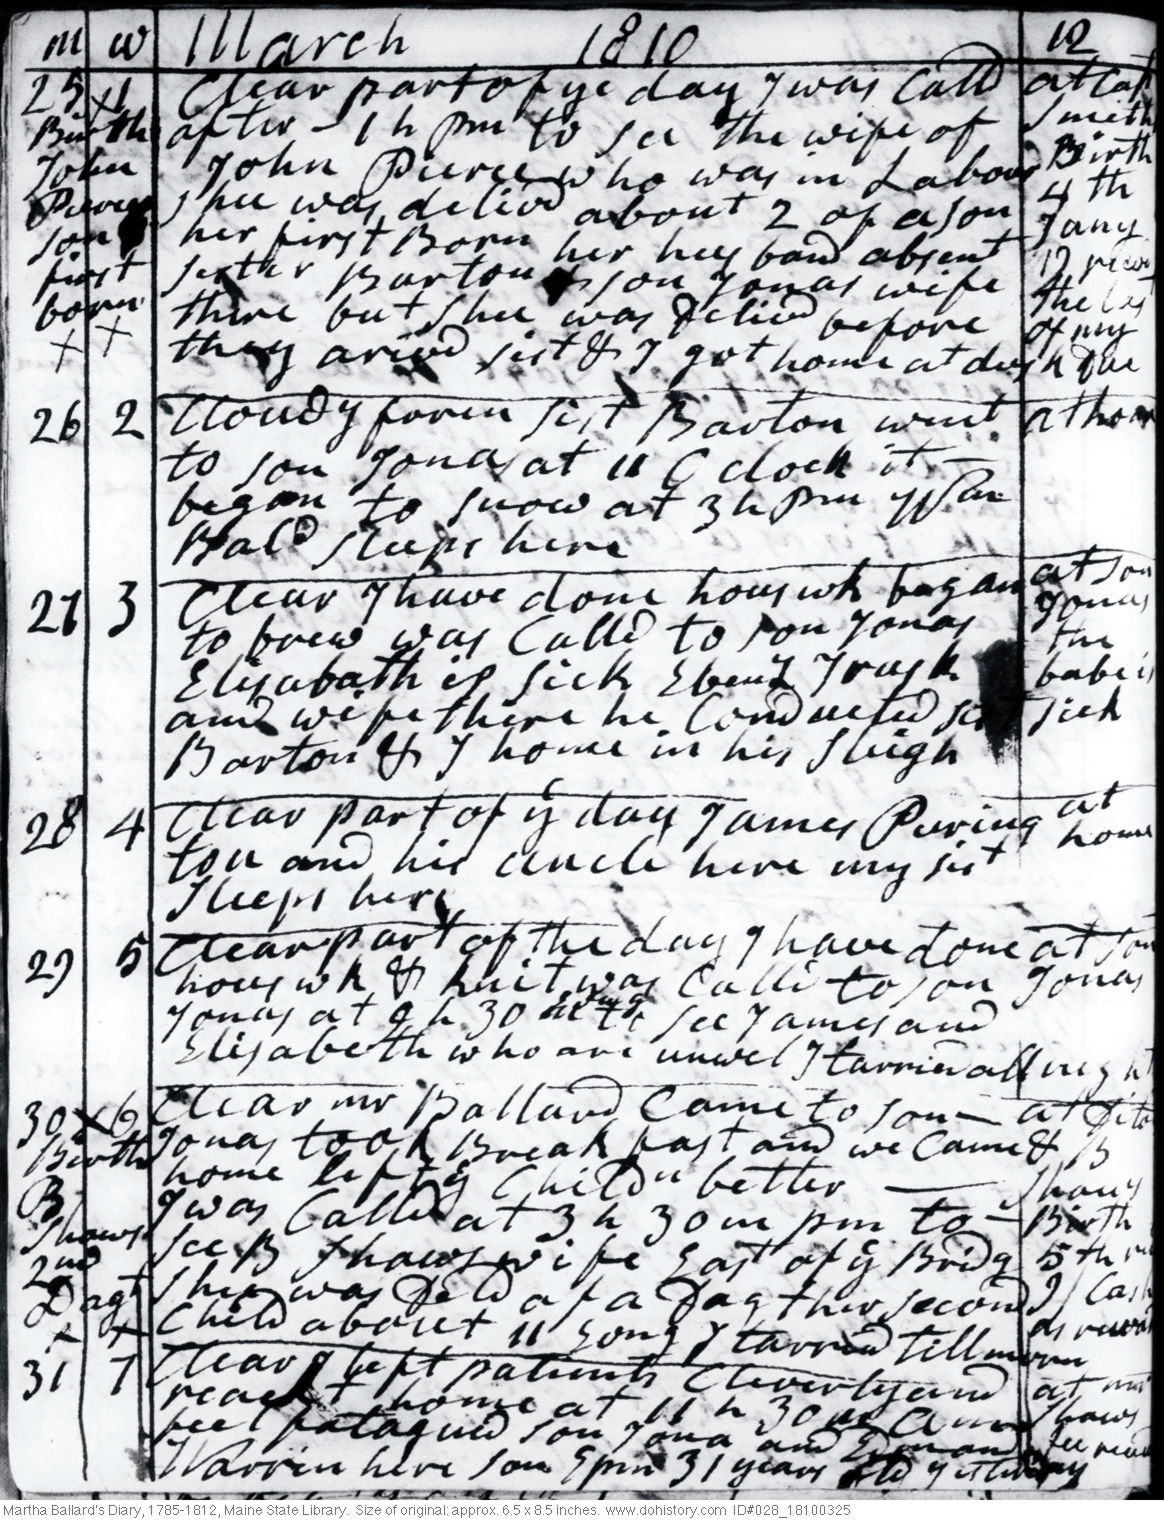 m w March 1810 12
25 x 1 Clear part of ye day I was Calld
after 1 h pm to see the wife of
John Pierce who was in Labour
shee was delivd about 2 of a son
her first Born her husband absent
sister Barton son Jonas wife
there but Shee was Delivd before
they arivd sist & I got home at dusk
Birth
John
Pierces
son
first
born
x x
Smiths
Birth
4th
Jany
12
of my
Due
26 2 Cloudy foren Sist Barton went
to son Jonas at 11 O Clock it
began to snow at 3 h pm
Bald Sleeps here
at home
27 3 Clear I have done hous wk began
to brew was Calld to son Jonas
Elisabath is sick Ebenz Trask
and wife there he Conducted sist
Barton & I home in his Sleigh
at son
Jonas
the
babe is
sick
28 4 Clear part of ÿ day James Puring
ton and his uncle here my sist
Sleeps here
at
home
29 5 Clear part of the day I have done
hous wk & knit was Calld to son
Jonas at 9 h 30 Evng to see James and
Elisabeth who are unwel I tarried all night
at son
Jonas
30 x 6 Clear mr Ballard Came to son
Jonas took Break fast and we Came
home left ÿ Childn better
I was Calld at 3 h 30 m pm to
see B Shaws wife East of ÿ Bridg
shee was Deld of a Dagt her second
Child about 11 Evng I tarried till morn
Birth
B
Shaws
2nd
Dagt
x x
at Dito
& B
Shaws
Birth
5th
Cash
as reward
31 7 Clear I left patients Cleverly and
reacht home at 11 h 30 m Am
feel fatagued son Jona and
Warrin here son Epm 31 years old ys day
at mr
Shaws
Martha Ballard's Diary, 1785-1812, Maine State Library. Size of original: approx. 6.5 x 8.5 inches. www.dohistory.com ID#028_18100325